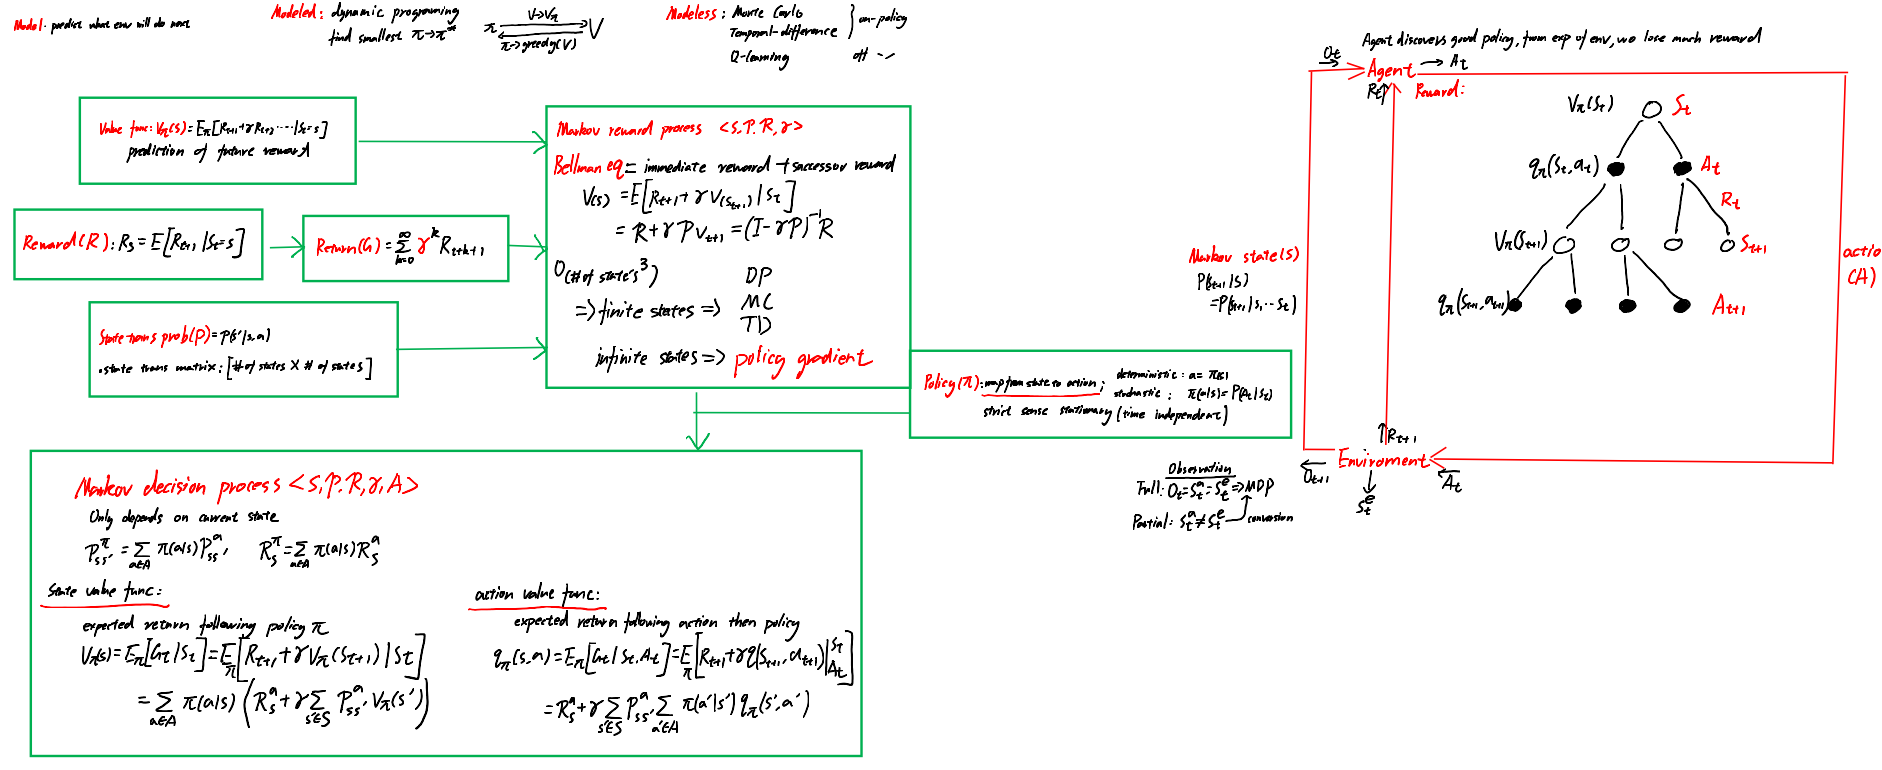 Model - predict what env will do next
Modeled: dynamic programing
find smallest π→π*
π V→Vπ V
π→greedy(V)
Modeless: Monte Carlo
Temporal-difference
on-policy
Q-learning off --
Value func: Vπ(s)=Eπ[Rt+1+γRt+2.....|St=s]
prediction of future reward
Reward(R): Rs=E[Rt+1|St=s]
Return(G)=∑_{k=0}^{∞} γ^k Rt+k+1
State trans prob(P)=P(s'|s,a)
.state trans matrix: [# of states X # of states]
Markov reward process <S,P,R,γ>
Bellman eq: = immediate reward + successor reward
V(s) = E[Rt+1+γV(St+1)|St]
= R+γPVt+1=(I-γP)^-1 R
O(# of state's^3)
=> finite states =>
DP
MC
TD
infinite states => policy gradient
Policy(π): map from state to action;
deterministic: a=π(s)
stochastic; π(a|s)=P(At|St)
strict sense stationary (time independent)
Markov decision process <S,P,R,γ,A>
Only depends on current state
P^π_ss'=∑_{a∈A} π(a|s)P^a_ss', R^π_s=∑_{a∈A} π(a|s)R^a_s
State value func:
expected return following policy π
Vπ(s)=Eπ[Gt|St]=Eπ[Rt+1+γVπ(St+1)|St]
=∑_{a∈A} π(a|s)(R^a_s+γ∑_{s'∈S} P^a_ss' Vπ(s'))
action value func:
expected return following action then policy
qπ(s,a)=Eπ[Gt|St,At]=Eπ[Rt+1+γq(St+1,at+1)|St At]
=R^a_s+γ∑_{s'∈S} P^a_ss' ∑_{a'∈A} π(a'|s')qπ(s',a')
Agent discovers good policy, from exp of env, wo lose much reward
Ot
Agent
At
Rt
Reward:
Vπ(St)
St
qπ(St,at)
At
Rt
Vπ(St+1)
St+1
qπ(St+1,at+1)
At+1
Markov state(S)
P(St+1|S)
=P(St+1|S1...St)
actio
(A)
Rt+1
Enviroment
Ot+1
At
S^e_t
Observation
Full: Ot=S^a_t=S^e_t=>MDP
Partial: S^a_t≠S^e_t
conversion